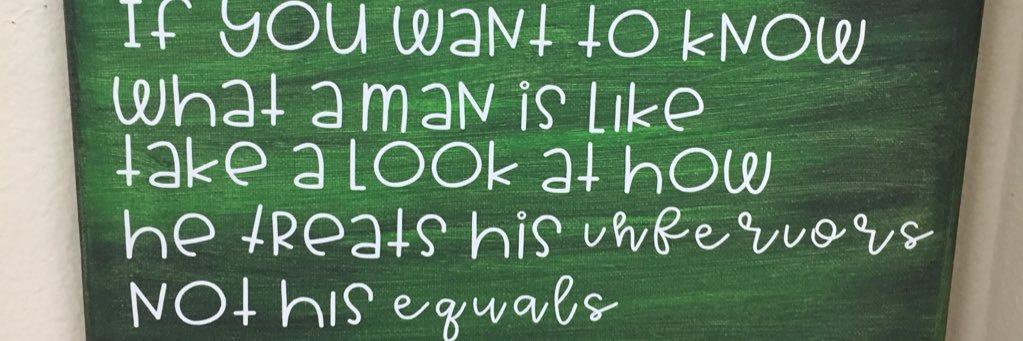 If you want to know
what a man is like
take a look at how
he treats his inferiors
not his equals